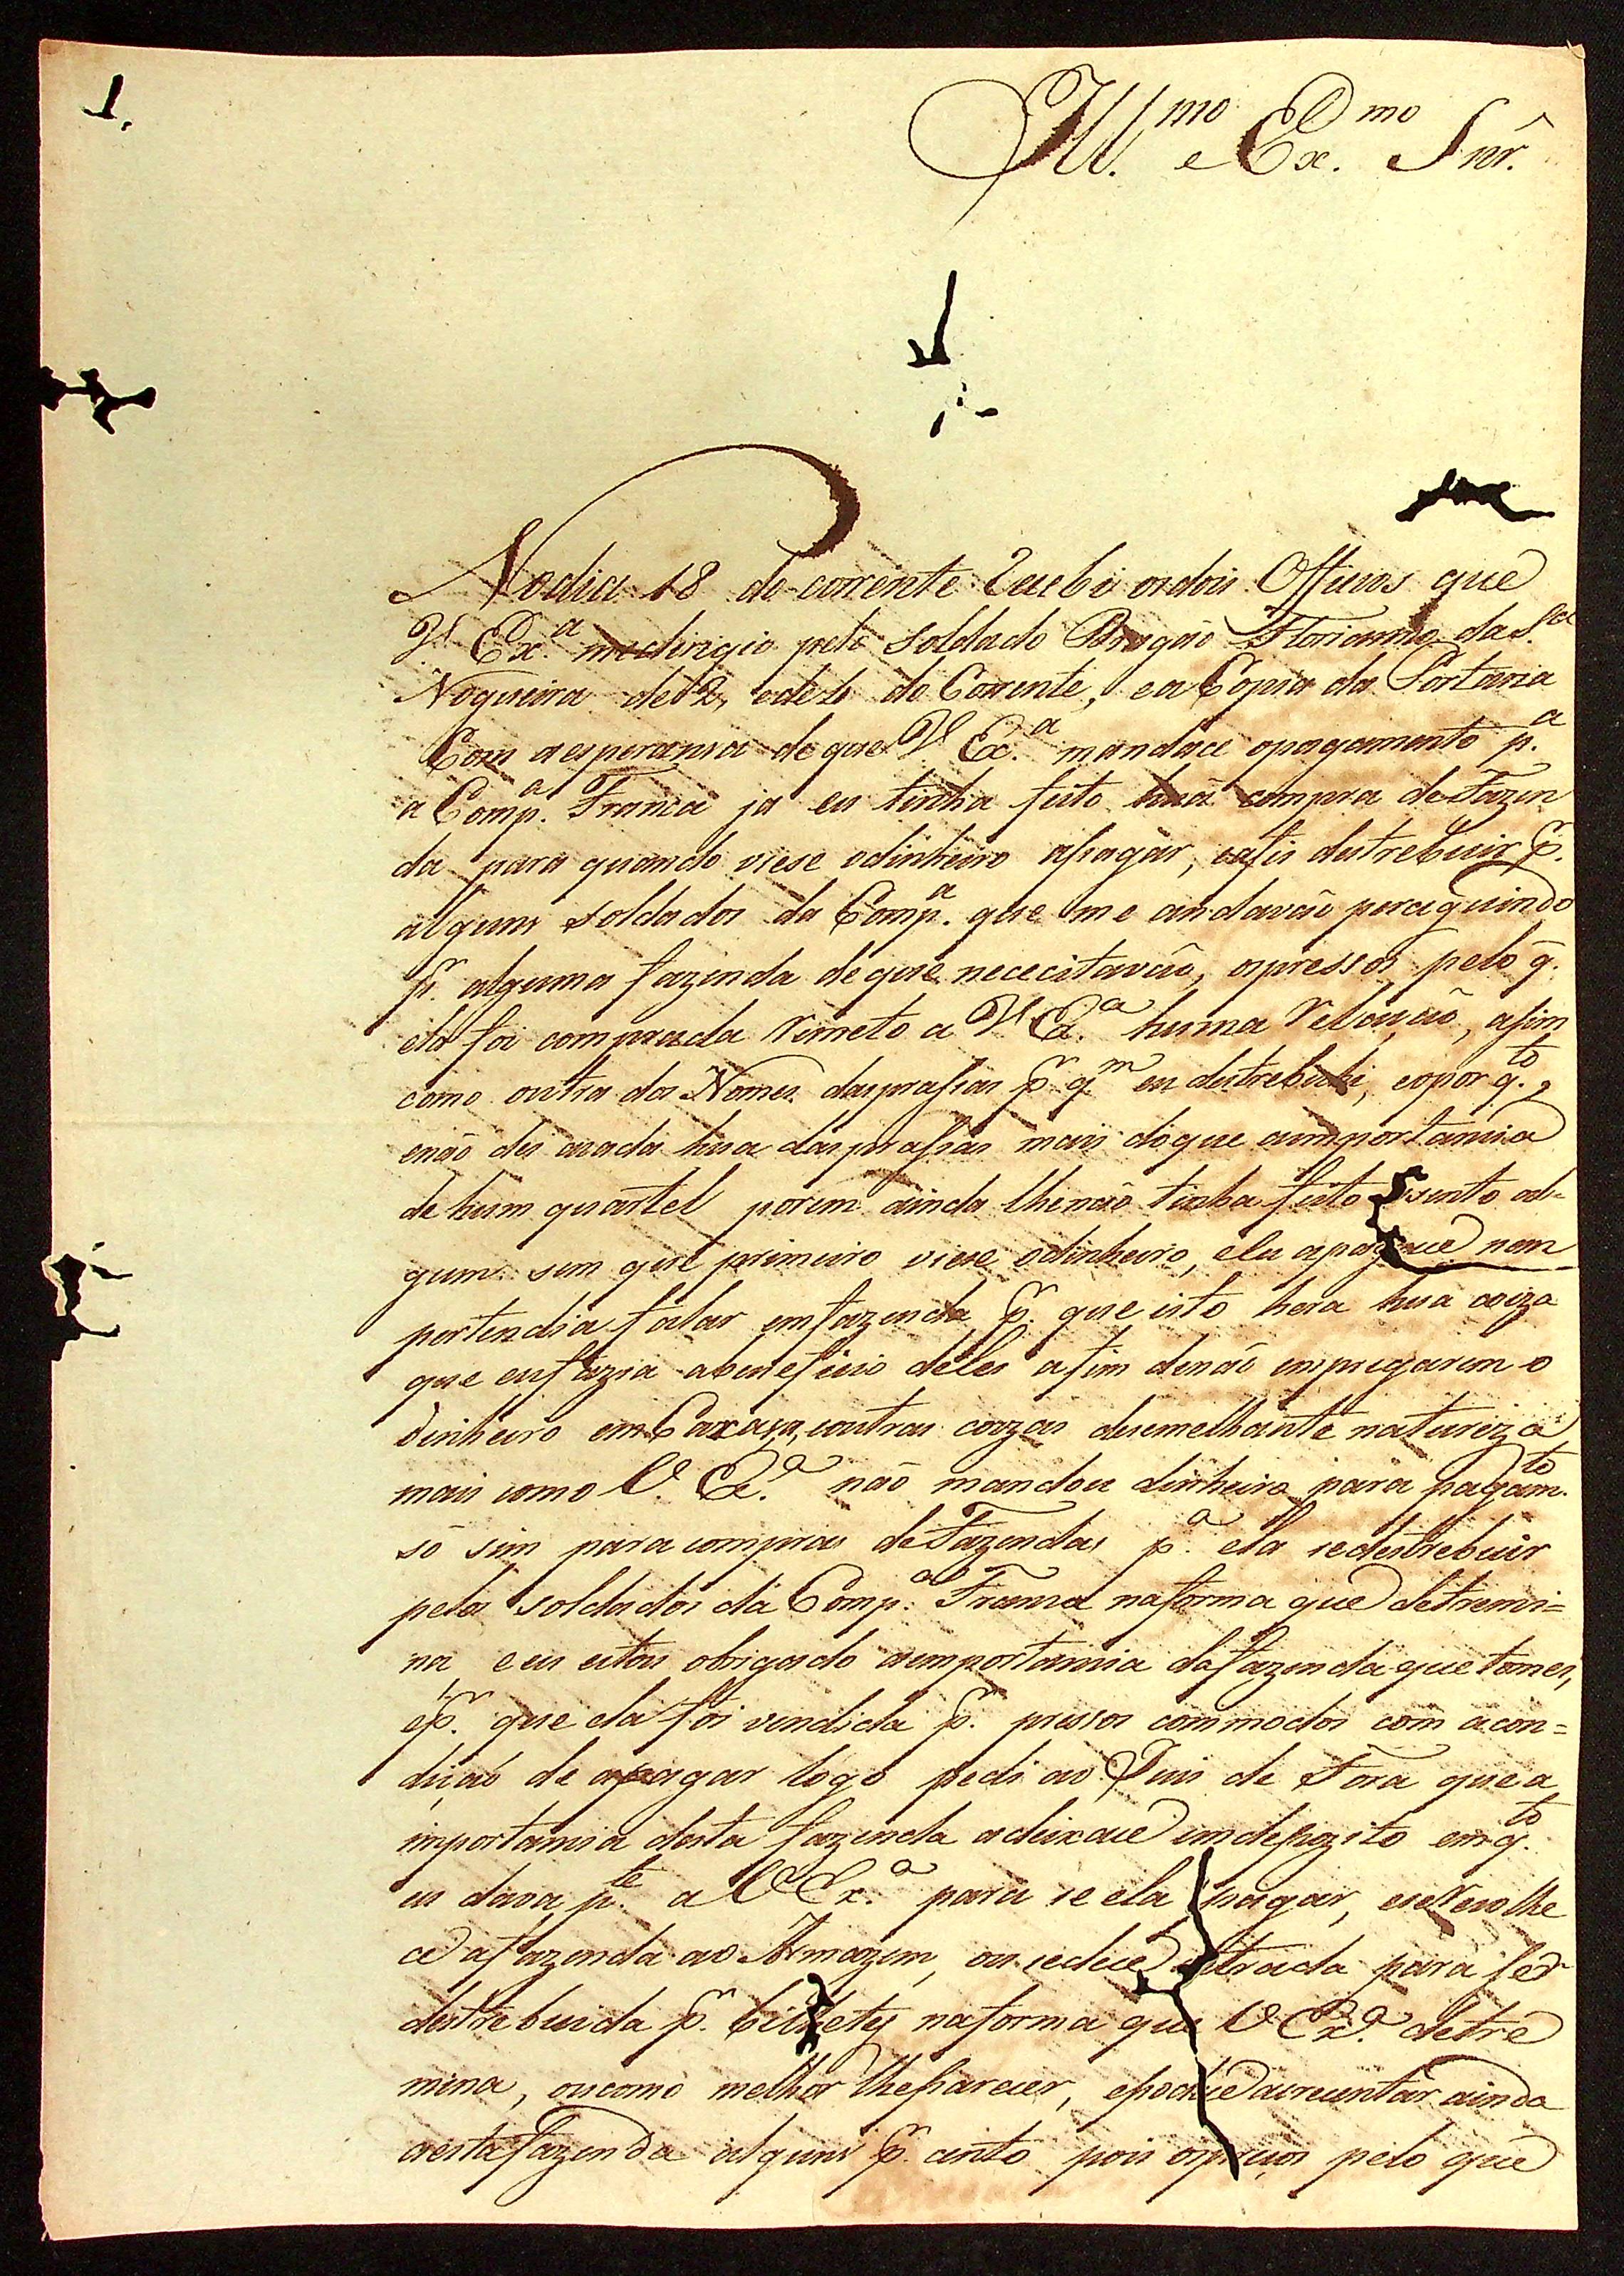 Ill.mo e Ex.mo Snr.
No dia 18 do corrente Recebi os dois Officios que
V. Ex.a me dirigio pelo soldado Dragaõ Florianno da S.a
Nogueira de 2, e de 4 do Corrente, e a Copia da Portaria
Com a esperansa de que V. Ex.a mandace o pagamento p.a
a Comp.a Franca ja eu tinha feito huã compra de Fazen
da para quando viese o dinheiro a pagar, e a fis destrebuir p.r
alguns soldados da Comp.a que me andavaõ perceguindo
p.r alguma fazenda de que nececitavaõ, os pressos pelo q.
ela foi comprada Remeto a V. Ex.a huma Relaçaõ, asim
como outra dos Nomes das prasas p.r q.m eu destrebuhi, e o por q.to,
e naõ dei a cada hua das prasas mais do que a importansia
de hum quartel porem ainda lhe naõ tinha feito asento al=
gum sem que primeiro viese o dinheiro, e lu apagace nem
pertendia falar em fazenda p.r que isto hera hua coiza
que eu fazia a beneficio deles afim de naõ empregarem o
dinheiro em Caxaça, e outras coizas de semelhante natureiza
mais como V. Ex.a não mandou dinheiro para pagam.to
só sim para compras de Fazendas p.a ela se destrebuir
pelos soldados da Comp.a Franca na forma que detremi=
na e eu estou obrigado a importansia da fazenda que tomei,
e p.r que ela foi vendida p.r pressos commodos com a con=
diçaõ de a pagar logo pedi ao Juis de Fora que a
importansia desta fazenda a deixace em depozito emq.to
eu dava p.te a V. Ex.a para se ela pagar, e se Recolhe
ce a fazenda ao Armazem, ou se dece entrada para ser
destrebuida p.r bilhetes na forma que V. Ex.a detre
mina, ou como melhor lhe parecer, e pode ce acrecentar ainda
a esta fazenda alguns p.r cento pois os preços pelo que